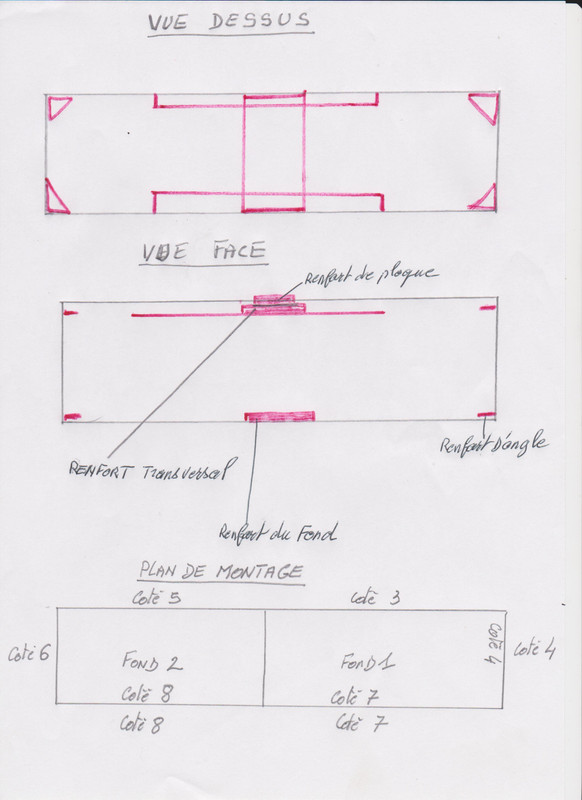 VUE DESSUS
VUE FACE
Renfort de plaque
Renfort D'angle
RENFORT Transversal
Renfort du Fond
PLAN DE MONTAGE
Coté 5 Coté 3
Coté 6 FOND 2 FOND 1 Coté 4 Coté 4
Coté 8 Coté 7
Coté 8 Coté 7